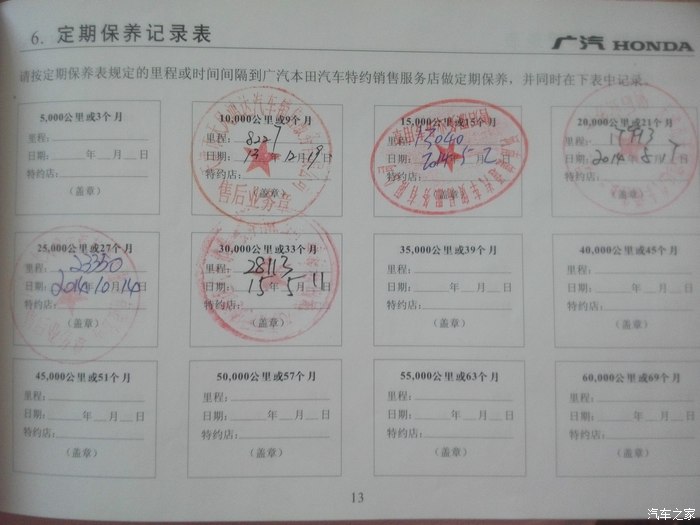 6. 定期保养记录表
广汽 HONDA
请按定期保养表规定的里程或时间间隔到广汽本田汽车特约销售服务店做定期保养，并同时在下表中记录。
5,000公里或3个月
里程：
日期： 年 月 日
特约店：
（盖章）
10,000公里或9个月
里程： 8227
日期： 13 年 12 月 19 日
特约店：
售后业务章
（盖章）
15,000公里或15个月
里程： 13040
日期： 2014
特约店：
（盖章）
20,000公里或21个月
里程：
日期： 2014 5 17
特约店：
（盖章）
25,000公里或27个月
里程： 23350
日期： 2014 年 10 月 14 日
特约店：
（盖章）
30,000公里或33个月
里程： 28113
日期： 15 年 5 月 11 日
特约店：
（盖章）
35,000公里或39个月
里程：
日期： 年 月 日
特约店：
（盖章）
40,000公里或45个月
里程：
日期： 年 月 日
特约店：
（盖章）
45,000公里或51个月
里程：
日期： 年 月 日
特约店：
（盖章）
50,000公里或57个月
里程：
日期： 年 月 日
特约店：
（盖章）
55,000公里或63个月
里程：
日期： 年 月 日
特约店：
（盖章）
60,000公里或69个月
里程：
日期： 年 月 日
特约店：
（盖章）
13
汽车之家